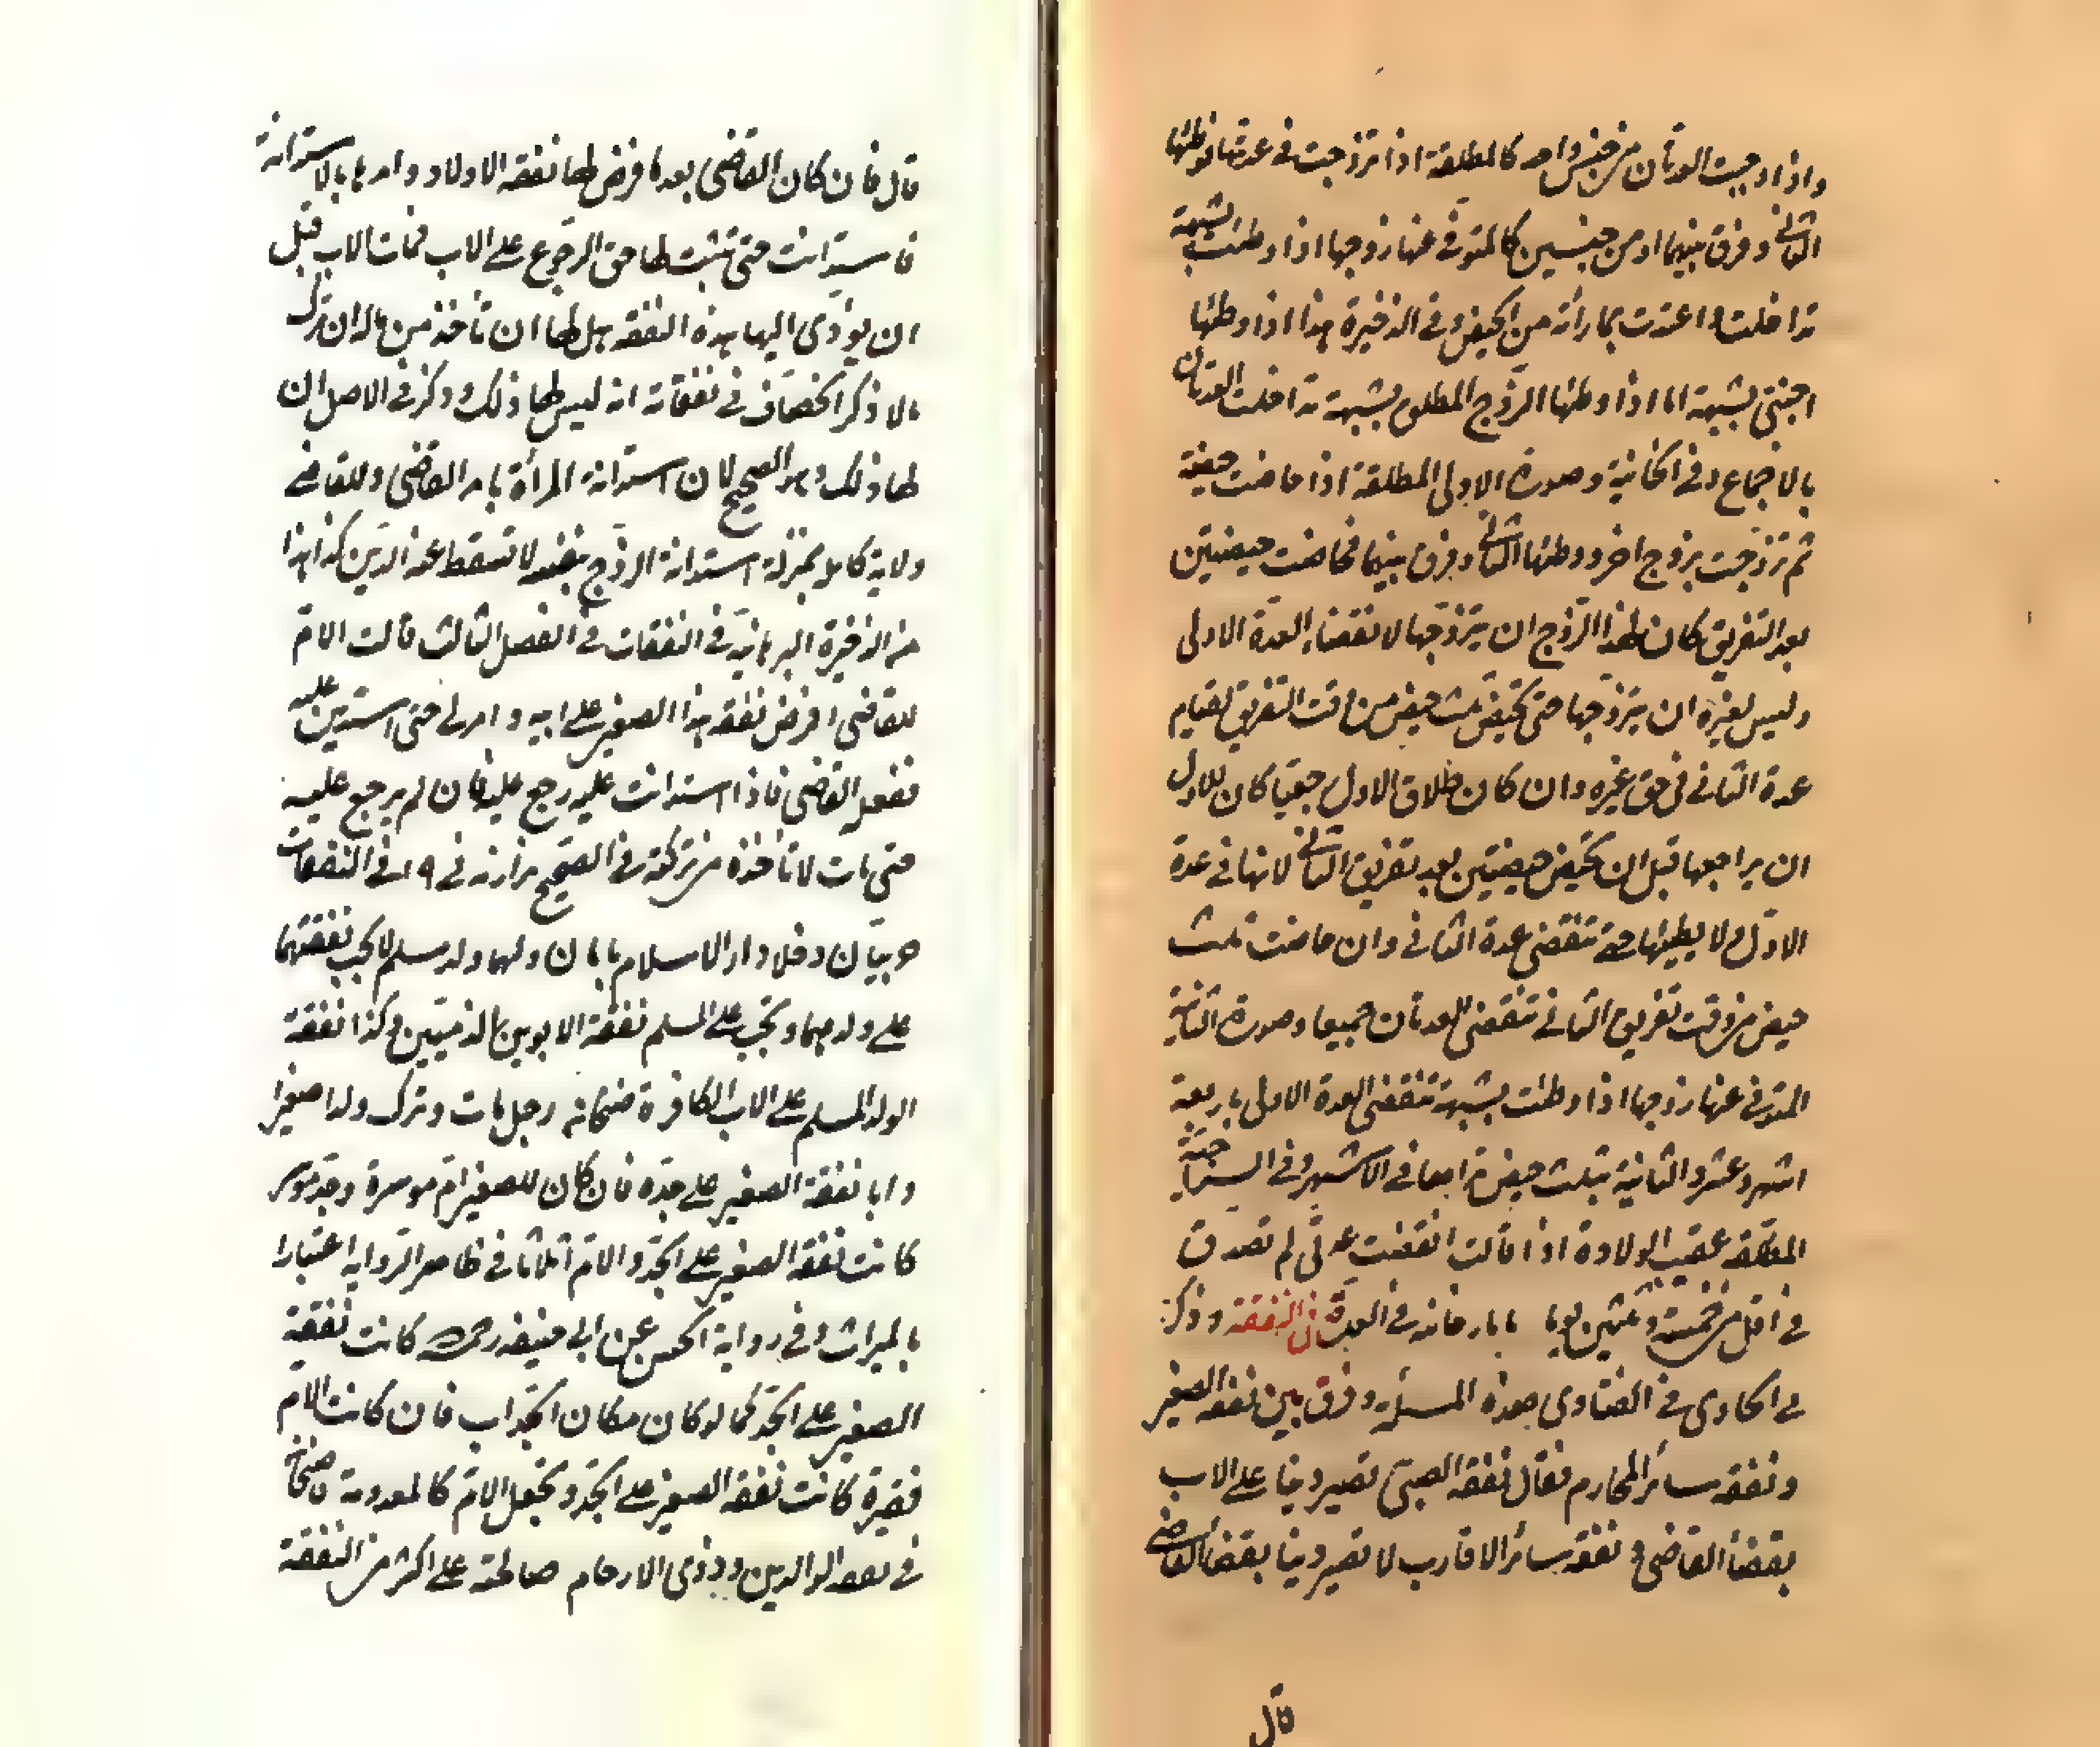 واذا وجبت العدتان من جنس واحد كالمطلقة اذا تزوجت فى عدتها فوطئها
الثانى وفرق بينهما او من جنسين كالمتوفى عنها زوجها اذا وطئت بشبهة
تداخلت واعتدت بما رأته من الحيض وفى الذخيرة هذا اذا وطئها
اجنبى بشبهة اما اذا وطئها الزوج المطلق بشبهة تداخلت العدتان
بالاجماع وفى الخانية وصورة الاولى المطلقة اذا حاضت حيضة
ثم تزوجت بزوج اخر ووطئها الثانى وفرق بينهما فحاضت حيضتين
بعد التفريق كان لهذا الزوج ان يتزوجها لانقضاء العدة الاولى
وليس لغيره ان يتزوجها حتى تحيض ثلث حيض من وقت التفريق لقيام
عدة الثانى فى حق غيره وان كان طلاق الاول رجعيا كان للاول
ان يراجعها قبل ان تحيض حيضتين بعد تفريق الثانى لانها فى عدة
الاول ولا يطيئها حتى تنقضى عدة الثانى وان حاضت ثلث
حيض من وقت تفريق الثانى تنقضى العدتان جميعا وصورة الثانية
المتوفى عنها زوجها اذا وطئت بشبهة تنقضى العدة الاولى باربعة
اشهر وعشر والثانية بثلث حيض تراها فى الاشهر وفى السراجية
المطلقة عقيب الولادة اذا قالت انقضت عدتى لم تصدق
فى اقل من خمسة وثمنين يوما تاتارخانيه فى العدة فى النفقة وذكر
فى الحاوى فى الفتاوى هذه المسئلة وفرق بين نفقة الصغير
ونفقة سائر المحارم فقال نفقة الصبى تصير دينا على الاب
بقضاء القاضى ونفقة سائر الاقارب لا تصير دينا بقضاء القاضى
قال
قال فان كان القاضى بعد ما فرض لها نفقة الاولاد وامرها بالاستدانة
فاستدانت حتى تثبت لها حق الرجوع على الاب فمات الاب قبل
ان يؤدى اليها هذه النفقة هل لها ان تأخذ من ماله ان ترك
مالا ذكر الخصاف فى نفقاته انه ليس لها ذلك وذكر فى الاصل ان
لها ذلك وهو الصحيح لان استدانة المرأة بامر القاضى وللقاضى
ولاية كاملة بمنزلة استدانة الزوج بنفسه لا تسقط عنه الدين كذا هذا
من الذخيرة البرهانية فى النفقات فى الفصل الثالث قالت الام
للقاضى افرض نفقة هذا الصغير على ابيه وامرنى حتى استدين عليه
ففعل القاضى فاذا استدانت عليه رجع عليه فان لم يرجع عليه
حتى مات لا تأخذه من تركته فى الصحيح بزازيه فى ١٩ فى النفقات
حربيان دخلا دار الاسلام بامان ولهما ولد مسلم لا تجب نفقتهما
على ولدهما وتجب على المسلم نفقة الابوين الذميين وكذا نفقة
الولد المسلم على الاب الكافر قاضيخانه رجل مات وترك ولدا صغيرا
وابا نفقة الصغير على جده فان كان للصغير ام موسرة وجد موسر
كانت نفقة الصغير على الجد والام اثلاثا فى ظاهر الرواية اعتبارا
بالميراث وفى رواية الحسن عن ابى حنيفه رحمه الله كانت نفقة
الصغير على الجد كما لو كان مكان الجد اب فان كانت الام
فقيرة كانت نفقة الصغير على الجد وتجعل الام كالمعدومة قاضيخان
فى نفقة الوالدين وذوى الارحام صالحته على اكثر من النفقة